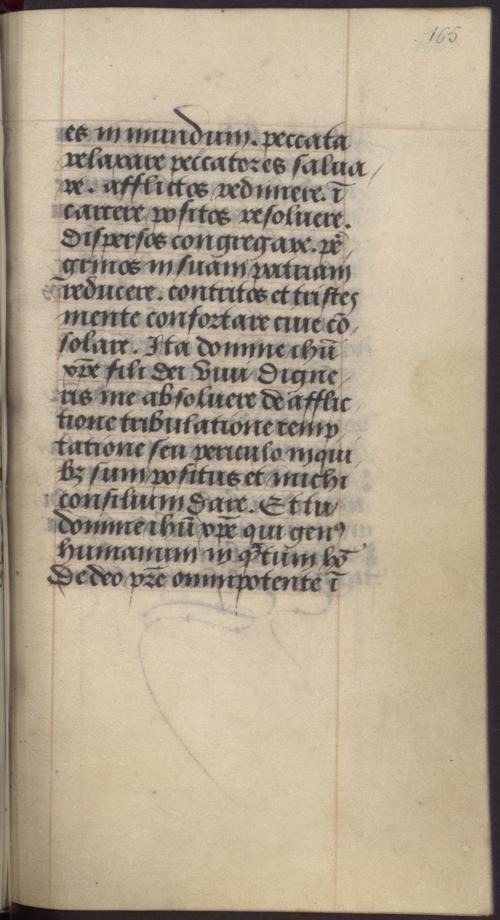 165
es in mundum. peccata
relaxare peccatores salua
re. afflictos redimere. ī
carcere positos resoluere.
Dispersos congregare. pē
grinos in suam patriam
reducere. contritos et tristes
mente confortare ciue cō
solare. Ita domine ihū
xp̄e fili dei viui Digne
ris me absoluere de afflic
tione tribulatione temp
tatione seu periculo in qui
bꝫ sum positus et michi
consilium dare. Et tu
domine ihū xp̄e qui genꝰ
humanum in
De deo pr̄e omnipotente ī